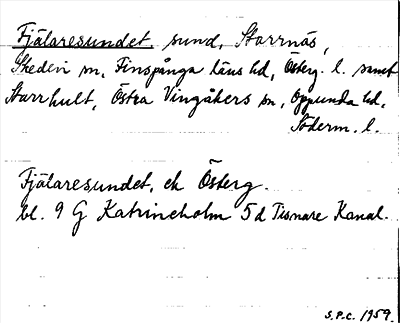 Fjälaresundet, sund, Starrnäs,
Skedevi sn, Finspånga läns hd, Österg. l. samt
Starrhult, Östra Vingåkers sn, Oppunda hd,
Söderm. l.
Fjälaresundet, ek Österg.
bl. 9 G Katrineholm 5 d Tisnare Kanal.
S.P.C. 1959.